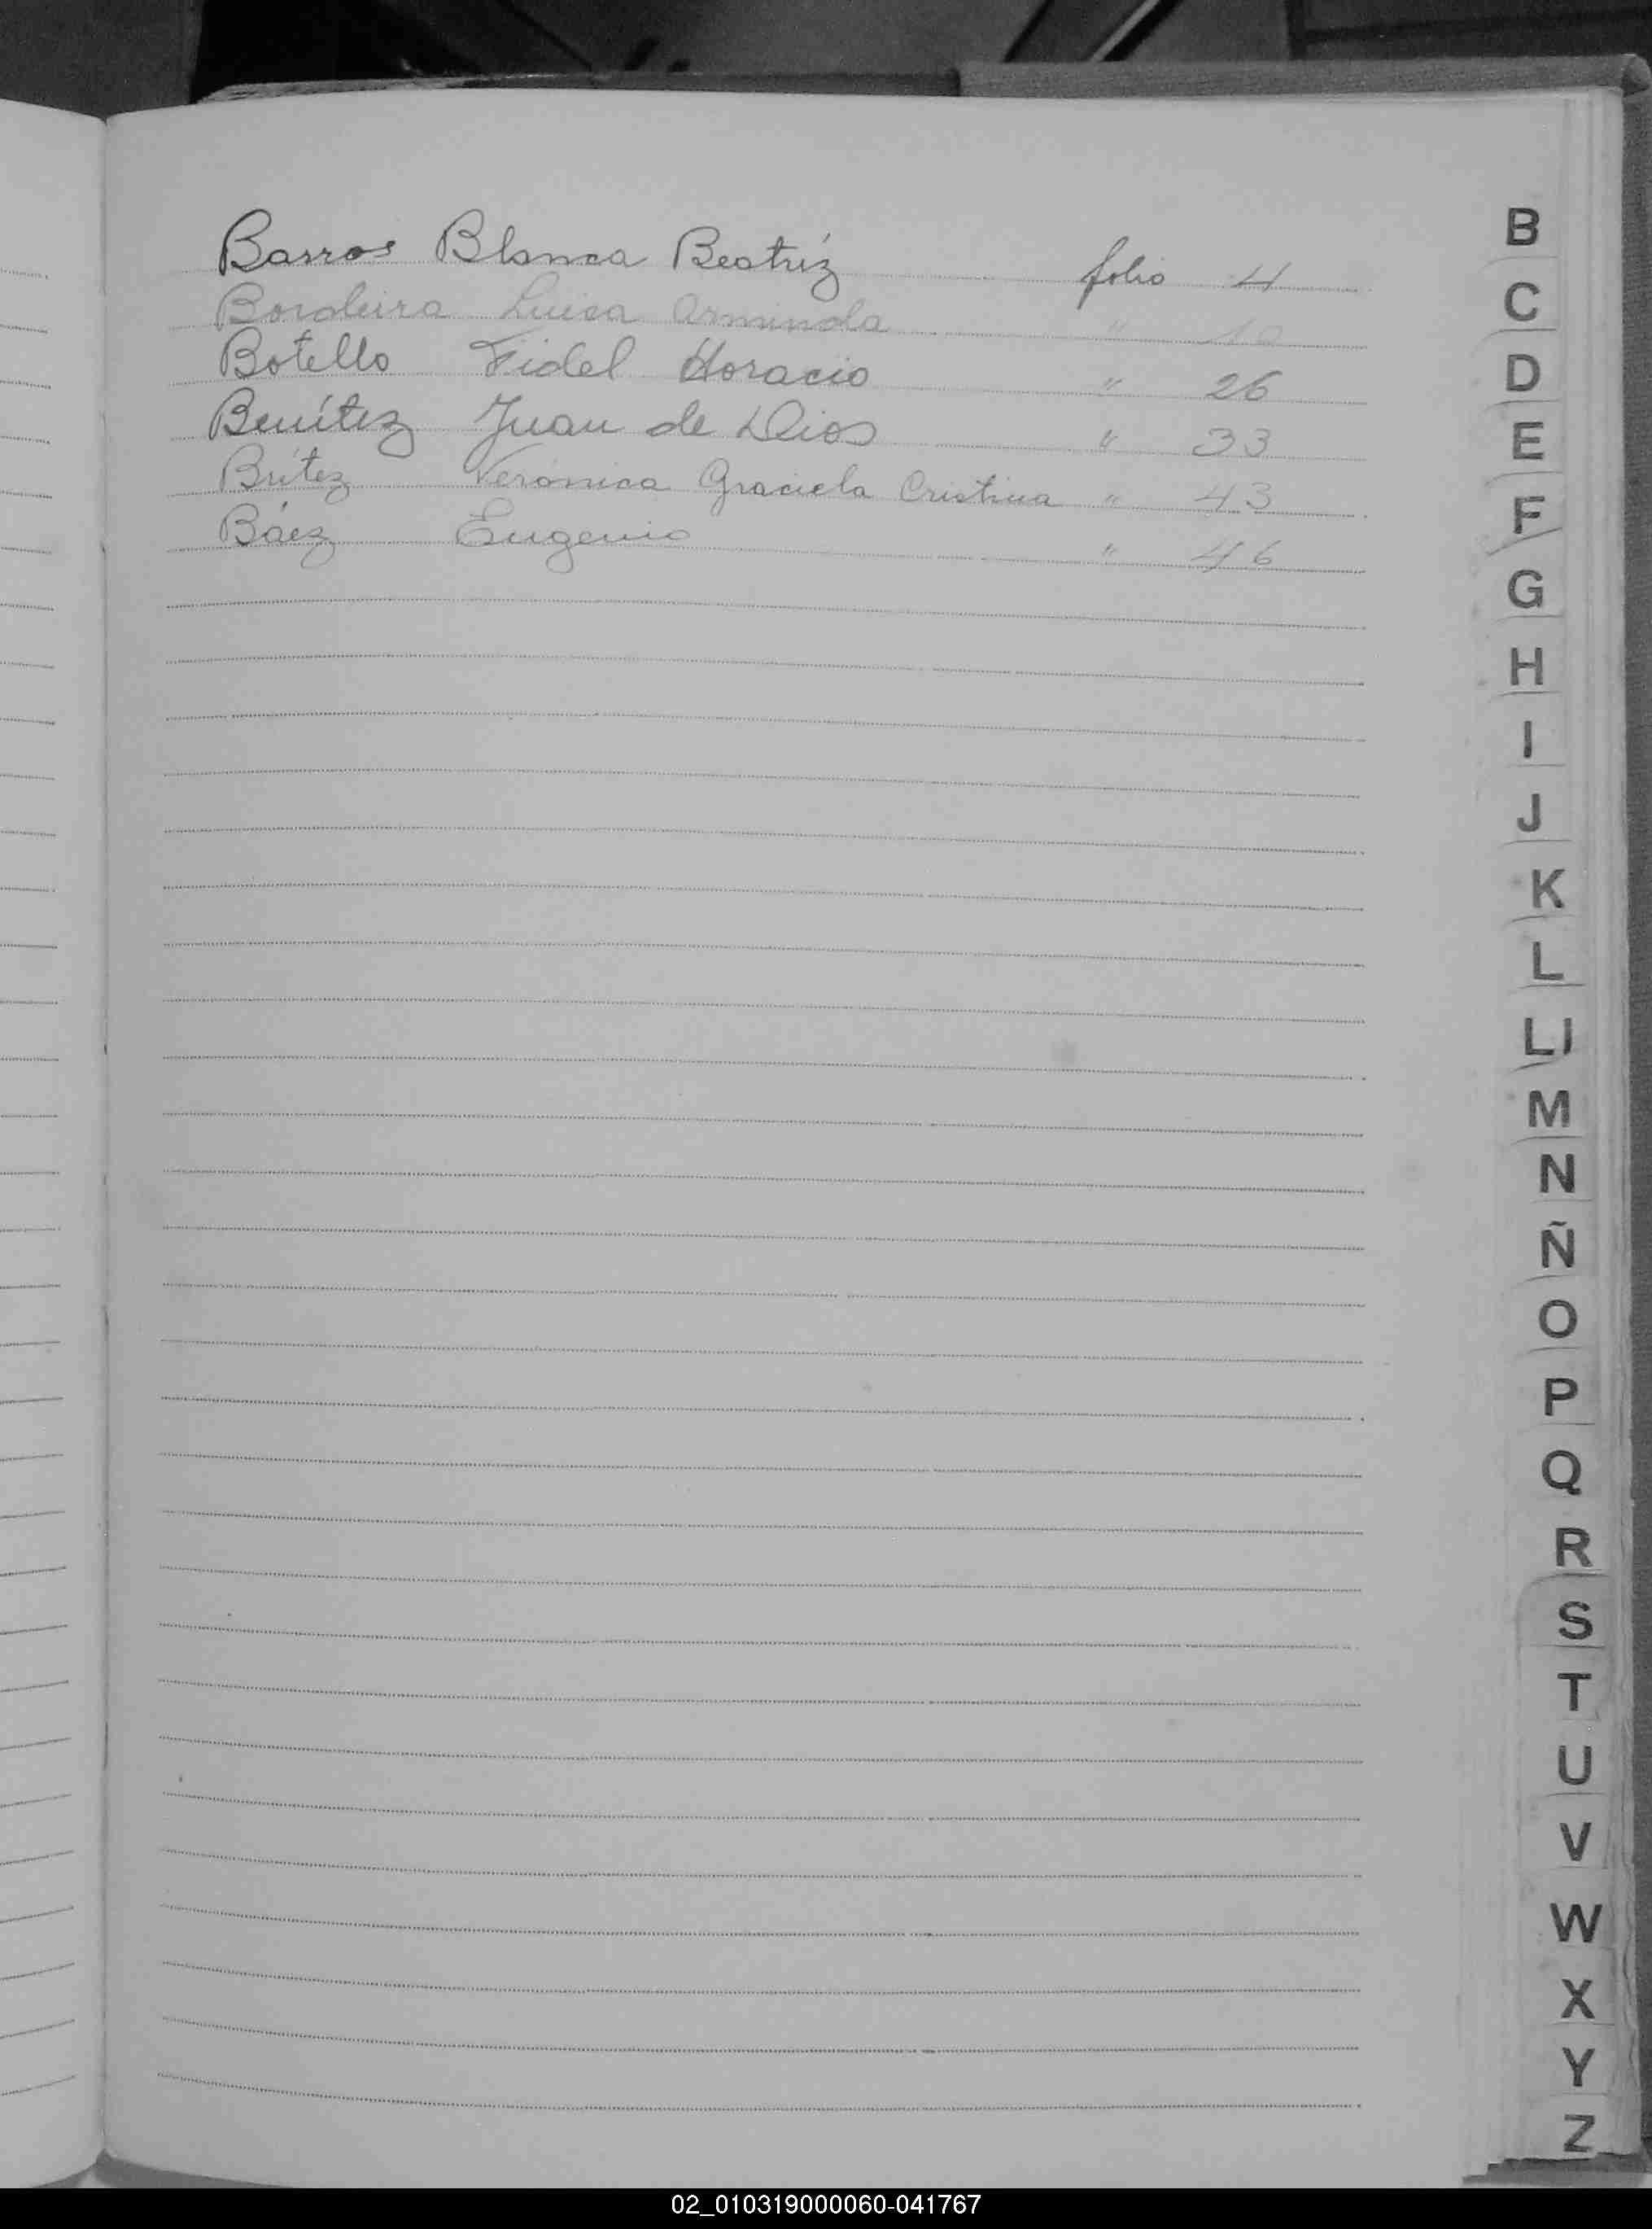 Barros Blanca Beatríz folio 4
Bordeira Luisa Arminda " 10
Botello Fidel Horacio " 26
Benítez Juan de Dios " 33
Brítez Verónica Graciela Cristina " 43
Báez Eugenio " 46
B
C
D
E
F
G
H
I
J
K
L
Ll
M
N
Ñ
O
P
Q
R
S
T
U
V
W
X
Y
Z
02_010319000060-041767